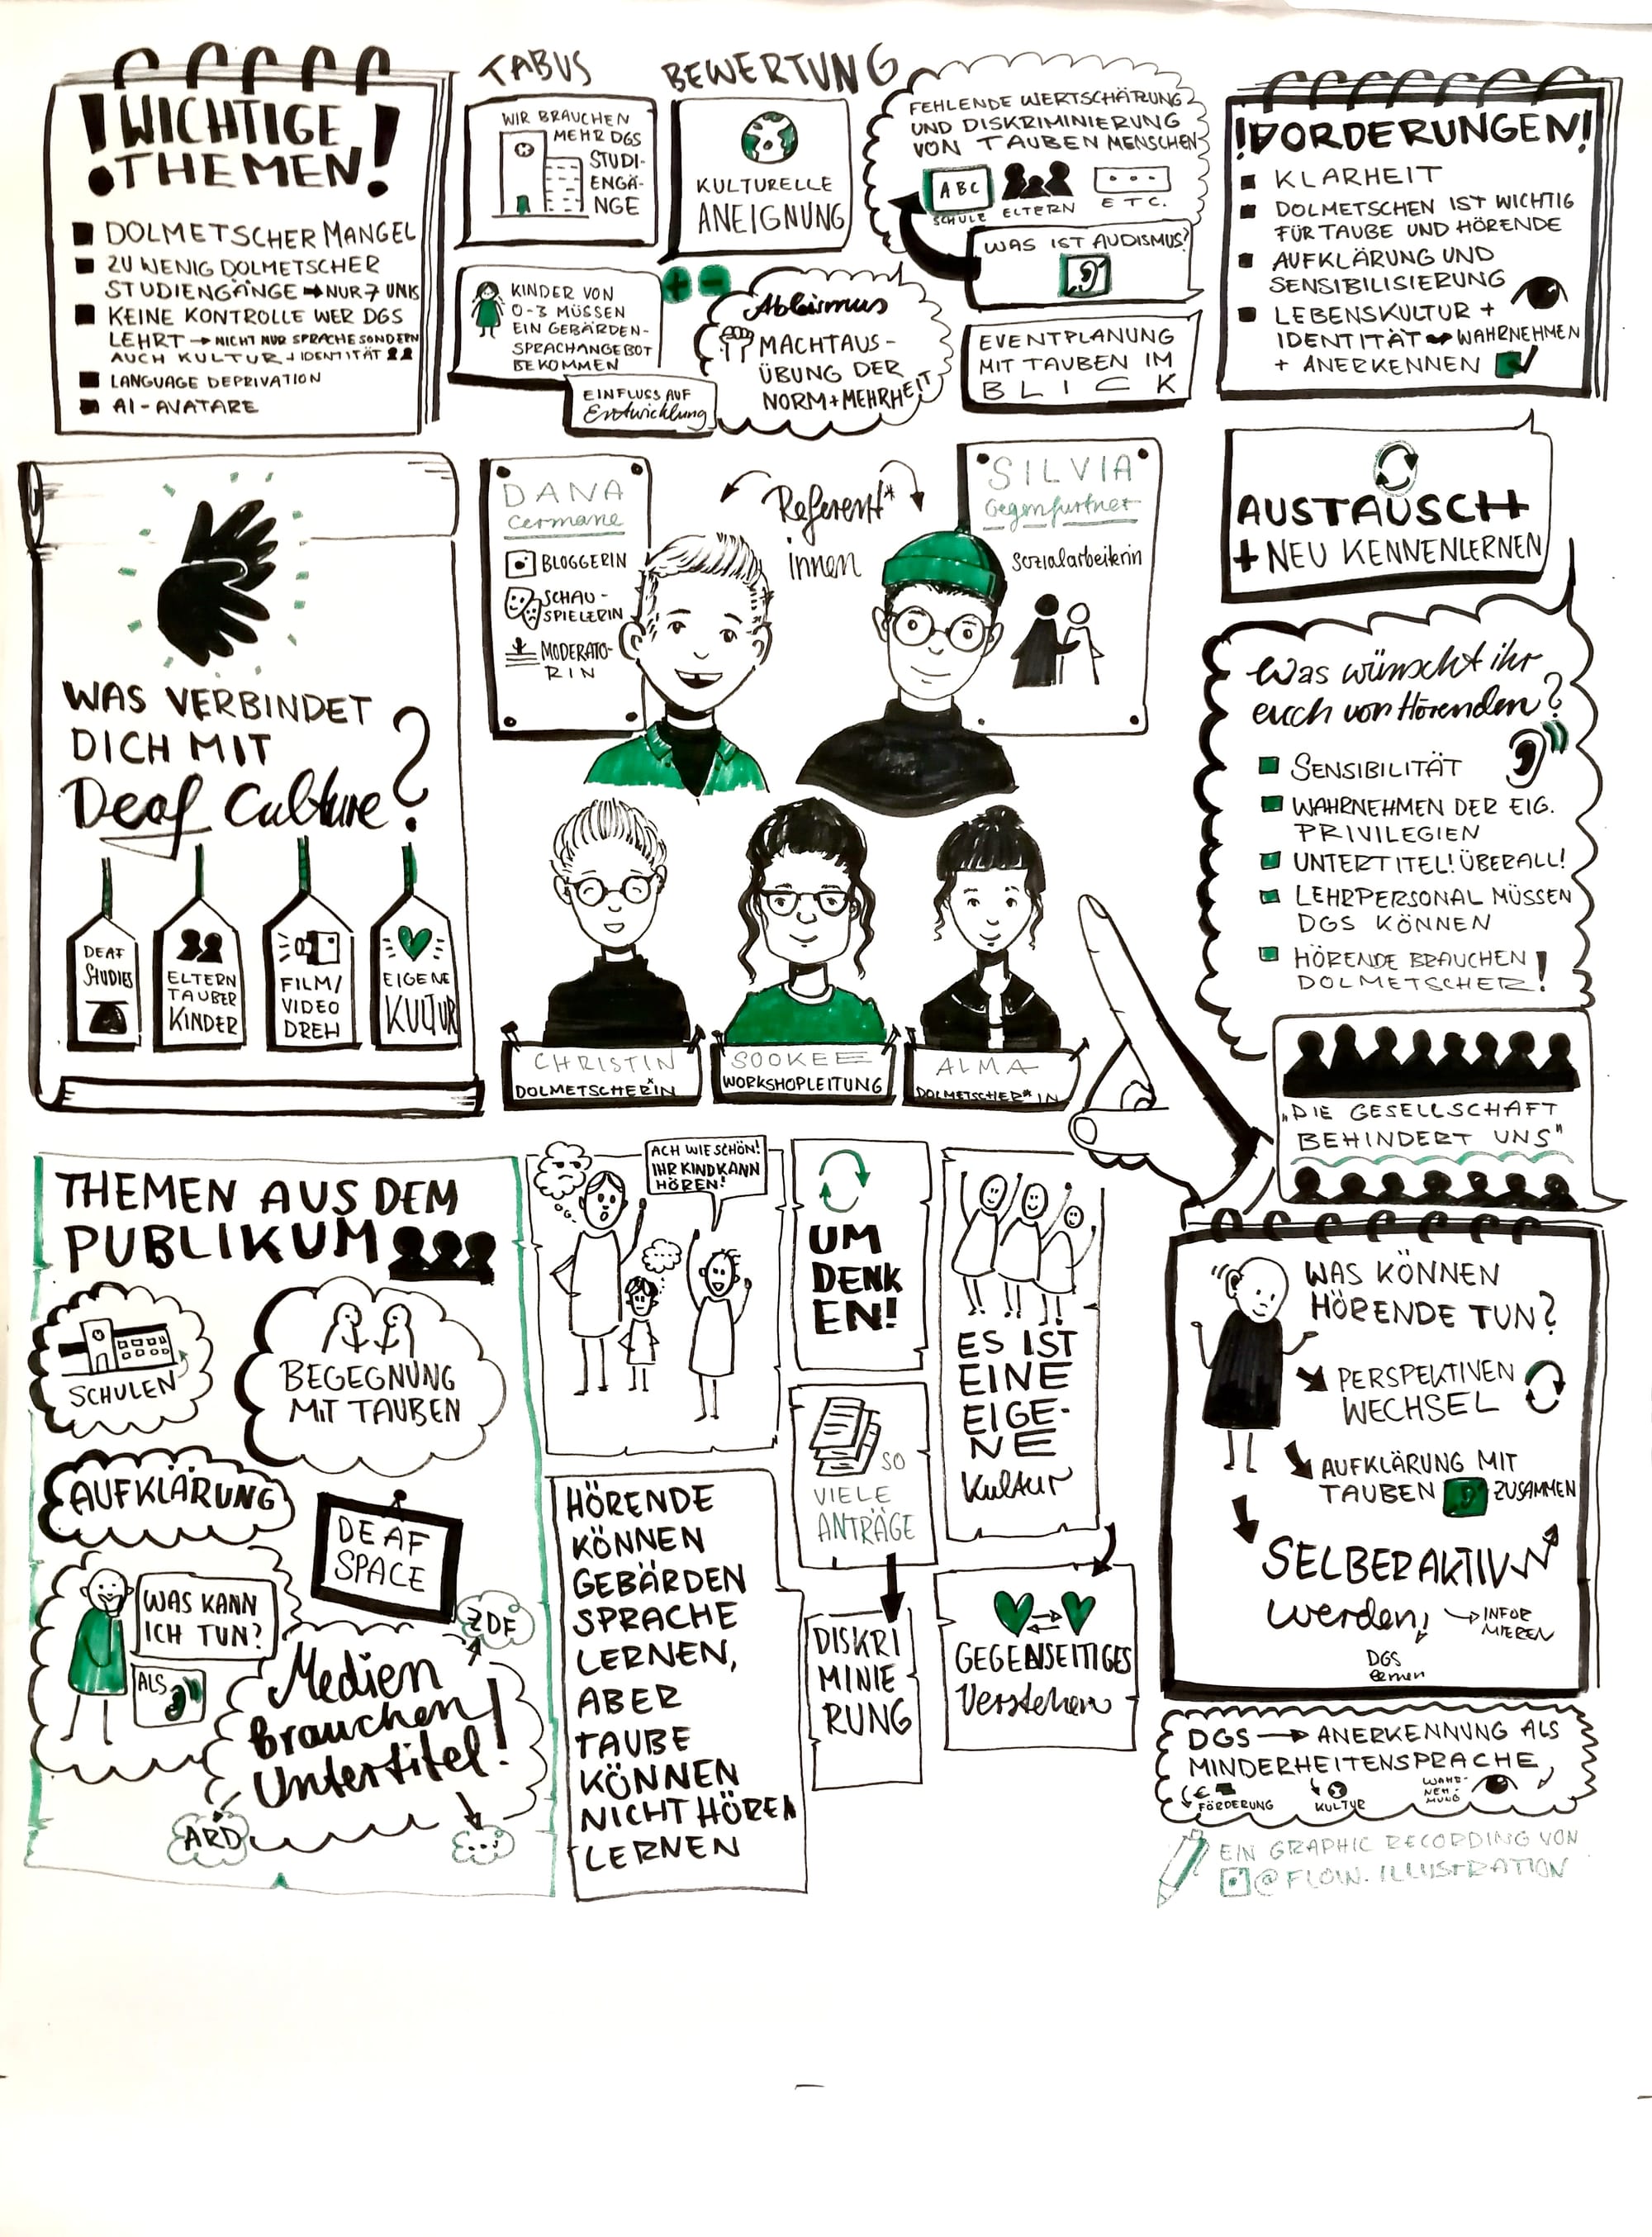 ! WICHTIGE
THEMEN!
DOLMETSCHER MANGEL
ZU WENIG DOLMETSCHER
STUDIENGÄNGE → NUR 7 UNIS
KEINE KONTROLLE WER DGS
LEHRT → NICHT NUR SPRACHE SONDERN
AUCH KULTUR + IDENTITÄT
LANGUAGE DEPRIVATION
AI-AVATARE
TABUS
WIR BRAUCHEN
MEHR DGS
STUDI-
ENGÄ-
NGE
KINDER VON
0-3 MÜSSEN
EIN GEBÄRDEN-
SPRACHANGEBOT
BEKOMMEN
EINFLUSS AUF
Entwicklung
BEWERTUNG
KULTURELLE
ANEIGNUNG
+ -
Ableismus
MACHTAUS-
ÜBUNG DER
NORM + MEHRHEIT
FEHLENDE WERTSCHÄTZUNG
UND DISKRIMINIERUNG
VON TAUBEN MENSCHEN
ABC
SCHULE
ELTERN
ETC.
WAS IST AUDISMUS?
EVENTPLANUNG
MIT TAUBEN IM
BLICK
!VORDERUNGEN!
KLARHEIT
DOLMETSCHEN IST WICHTIG
FÜR TAUBE UND HÖRENDE
AUFKLÄRUNG UND
SENSIBILISIERUNG
LEBENSKULTUR +
IDENTITÄT → WAHRNEHMEN
+ ANERKENNEN
WAS VERBINDET
DICH MIT
Deaf Culture?
DEAF
STUDIES
ELTERN
TAUBER
KINDER
FILM/
VIDEO
DREH
EIGENE
KULTUR
DANA
Cermane
BLOGGERIN
SCHAU-
SPIELERIN
MODERATO-
RIN
Referent*
innen
SILVIA
Gegenfurtner
Sozialarbeiterin
CHRISTIN
DOLMETSCHER*IN
SOOKEE
WORKSHOPLEITUNG
ALMA
DOLMETSCHER*IN
AUSTAUSCH
+ NEU KENNENLERNEN
Was wünscht ihr
euch von Hörenden?
SENSIBILITÄT
WAHRNEHMEN DER EIG.
PRIVILEGIEN
UNTERTITEL! ÜBERALL!
LEHRPERSONAL MÜSSEN
DGS KÖNNEN
HÖRENDE BRAUCHEN
DOLMETSCHER!
„DIE GESELLSCHAFT
BEHINDERT UNS"
THEMEN AUS DEM
PUBLIKUM
SCHULEN
BEGEGNUNG
MIT TAUBEN
AUFKLÄRUNG
DEAF
SPACE
WAS KANN
ICH TUN?
ALS
Medien
brauchen
Untertitel!
ZDF
ARD
...
ACH WIE SCHÖN!
IHR KIND KANN
HÖREN!
HÖRENDE
KÖNNEN
GEBÄRDEN
SPRACHE
LERNEN,
ABER
TAUBE
KÖNNEN
NICHT HÖREN
LERNEN
UM
DENK
EN!
SO
VIELE
ANTRÄGE
DISKRI
MINIE
RUNG
ES IST
EINE
EIGE-
NE
Kultur
GEGENSEITIGES
Verstehen
WAS KÖNNEN
HÖRENDE TUN?
PERSPEKTIVEN
WECHSEL
AUFKLÄRUNG MIT
TAUBEN ZUSAMMEN
SELBER AKTIV
werden!
→ INFOR
MIEREN
DGS
lernen
DGS → ANERKENNUNG ALS
MINDERHEITENSPRACHE
€
FÖRDERUNG
KULTUR
WAHR-
NEH-
MUNG
EIN GRAPHIC RECORDING VON
@FLOW.ILLUSTRATION